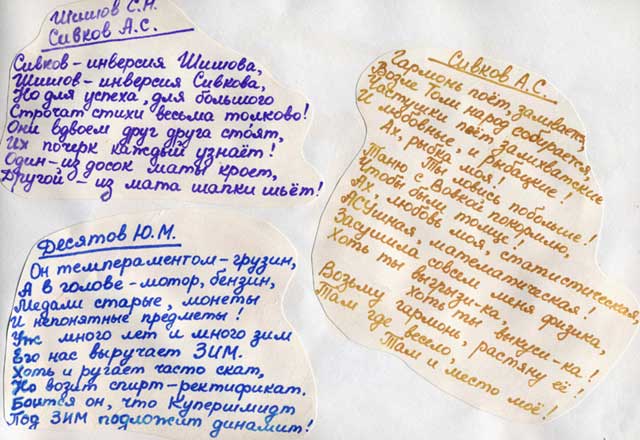 Шишов С.Н.
Сивков А.С.
Сивков – инверсия Шишова,
Шишов – инверсия Сивкова,
Но для успеха, для большого
Строчат стихи весьма толково!
Они вдвоем друг друга стоят,
Их почерк каждый узнаёт!
Один – из досок маты кроет,
Другой – из мата шапки шьёт!
Десятов Ю.М.
Он темпераментом – грузин,
А в голове – мотор, бензин,
Медали старые, монеты
И непонятные предметы!
Уж много лет и много зим
Его нас выручает ЗИМ.
Хоть и ругает часто скат,
Но возит спирт-ректификат.
Боится он, что Купершмидт
Под ЗИМ подложит динамит!
Сивков А.С.
Гармонь поёт, заливает,
Возле Толи народ собирается,
Частушки поёт залихватские
И любовные, и рыбацкие!
Ах, рыбка моя!
Ты ловись побольше!
Таню с Вовкой покормлю,
Чтобы были толще!
Ах, любовь моя, статистическая,
АСУшная, математическая!
Засушила совсем меня физика,
Хоть ты выгрызи-ка,
Хоть ты выкуси-ка!
Возьму гармонь, растяну её!
Там где весело,
Там и место моё!